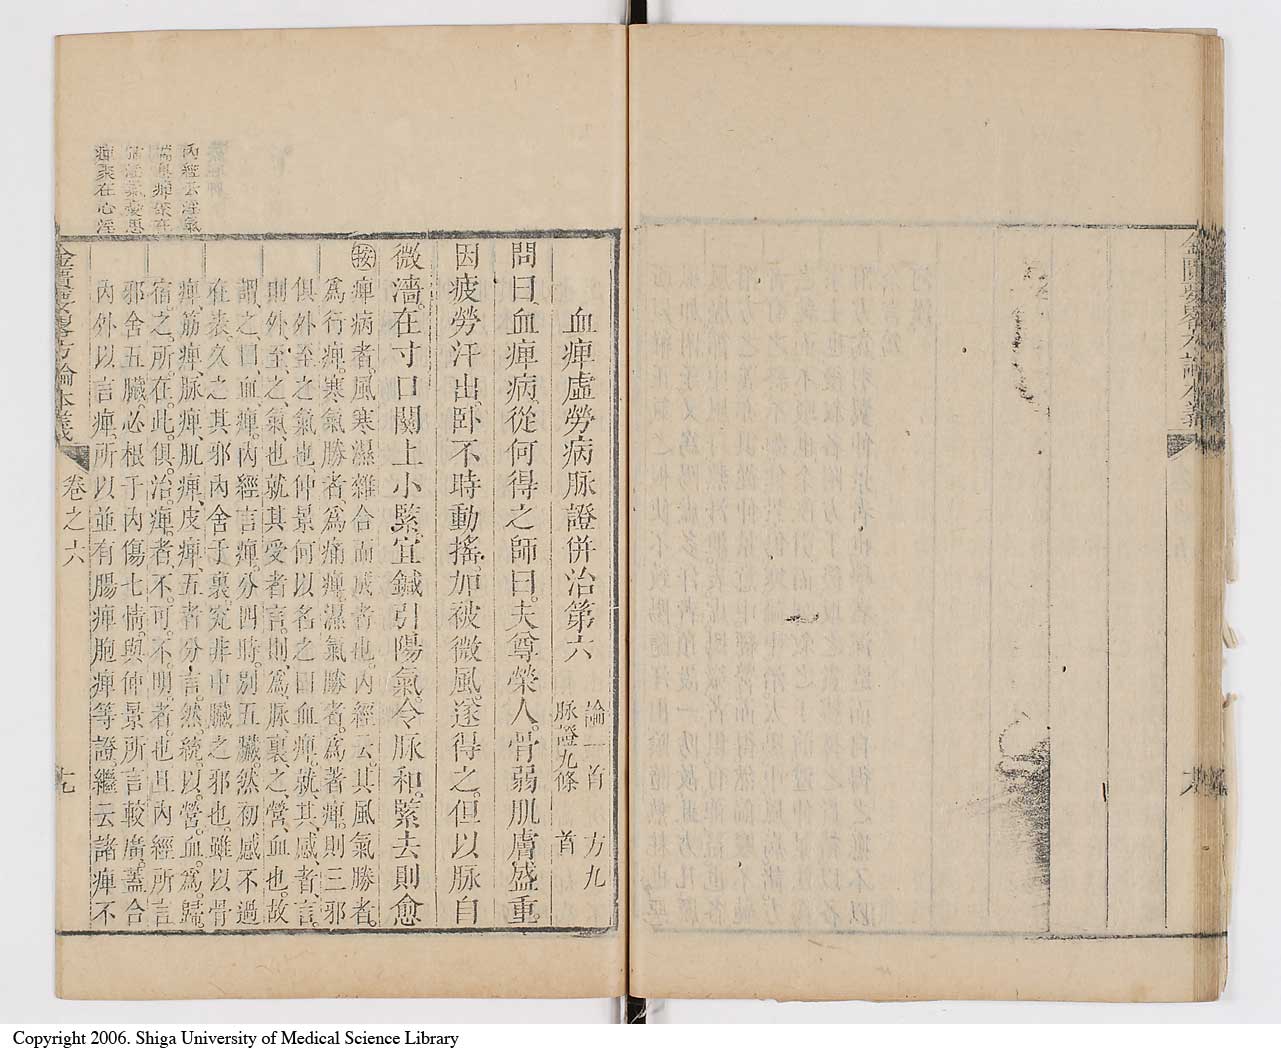 金匱要畧方論本義
六
血痺虛勞病脉證併治第六
論一首
脉證九條
方九
首
問曰、血痺病、從何得之、師曰、夫尊榮人、骨弱肌膚盛、重
因疲勞汗出、臥不時動搖、加被微風、遂得之、但以脉自
微濇、在寸口關上小緊、宜鍼引陽氣、令脉和、緊去則愈
按痺病者、風寒濕雜合而成者也、內經云、其風氣勝者、
爲行痺、寒氣勝者、爲痛痺、濕氣勝者、爲著痺、則三邪
俱外至之氣也、仲景何以名之曰血痺、就其感者言、
則外至之氣也、就其受者言、則爲脉裏之營血也、故
謂之曰血痺、內經言痺、分四時、別五臟、然初感不過
在表、久之其邪內舍于裏、究非中臟之邪也、雖以骨
痺、筋痺、脉痺、肌痺、皮痺、五者分言、然統以營血爲歸
宿之所在、此俱治痺者不可不明者也、且內經所言
邪舍五臟、必根于內傷七情、與仲景所言較廣、蓋合
內外以言痺、所以並有腸痺胞痺等證、繼云諸痺不
內經云淫氣
喘息痺聚在
肺淫氣憂思
痺聚在心淫
金匱要畧方論本義
卷之六
七
Copyright 2006. Shiga University of Medical Science Library